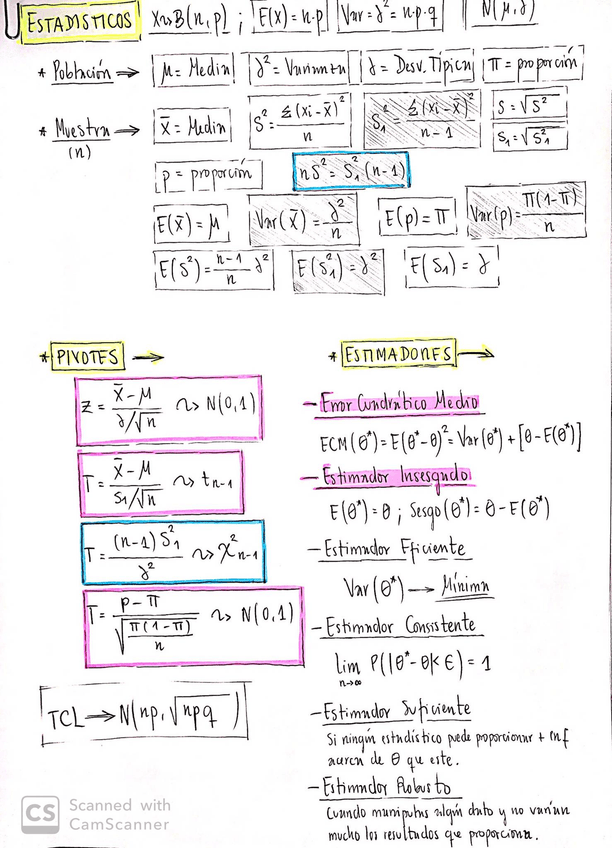 ESTADISTICOS X~B(n,p) ; E(x)=n·p Var=∂²=n·p·q N(μ,∂)
* Población → μ=Media ∂²=Varianza ∂=Desv.Típica π=proporción
* Muestra (n) → x̄=Media S²=Σ(xi-x̄)²/n S₁²=Σ(xi-x̄)²/n-1 S=√S²
S₁=√S₁²
p=proporción nS²=S₁²(n-1)
E(x̄)=μ Var(x̄)=∂²/n E(p)=π Var(p)=π(1-π)/n
E(S²)=n-1/n ∂² E(S₁²)=∂² E(S₁)=∂
* PIVOTES →
Z=x̄-μ/∂/√n ~> N(0,1)
T=x̄-μ/S₁/√n ~> tn-1
T=(n-1)S₁²/∂² ~> χ²n-1
T=p-π/√π(1-π)/n ~> N(0,1)
TCL → N(np,√npq)
* ESTIMADORES →
- Error Cuadrático Medio
ECM(θ*)=E(θ*-θ)²=Var(θ*)+[θ-E(θ*)]
- Estimador Insesgado
E(θ*)=θ ; Sesgo(θ*)=θ-E(θ*)
- Estimador Eficiente
Var(θ*) → Mínima
- Estimador Consistente
lim n→∞ P(|θ*-θ|<ε)=1
- Estimador Suficiente
Si ningún estadístico puede proporcionar + inf
acerca de θ que este.
- Estimador Robusto
Cuando manipulas algún dato y no varían
mucho los resultados que proporciona.
CS Scanned with
CamScanner